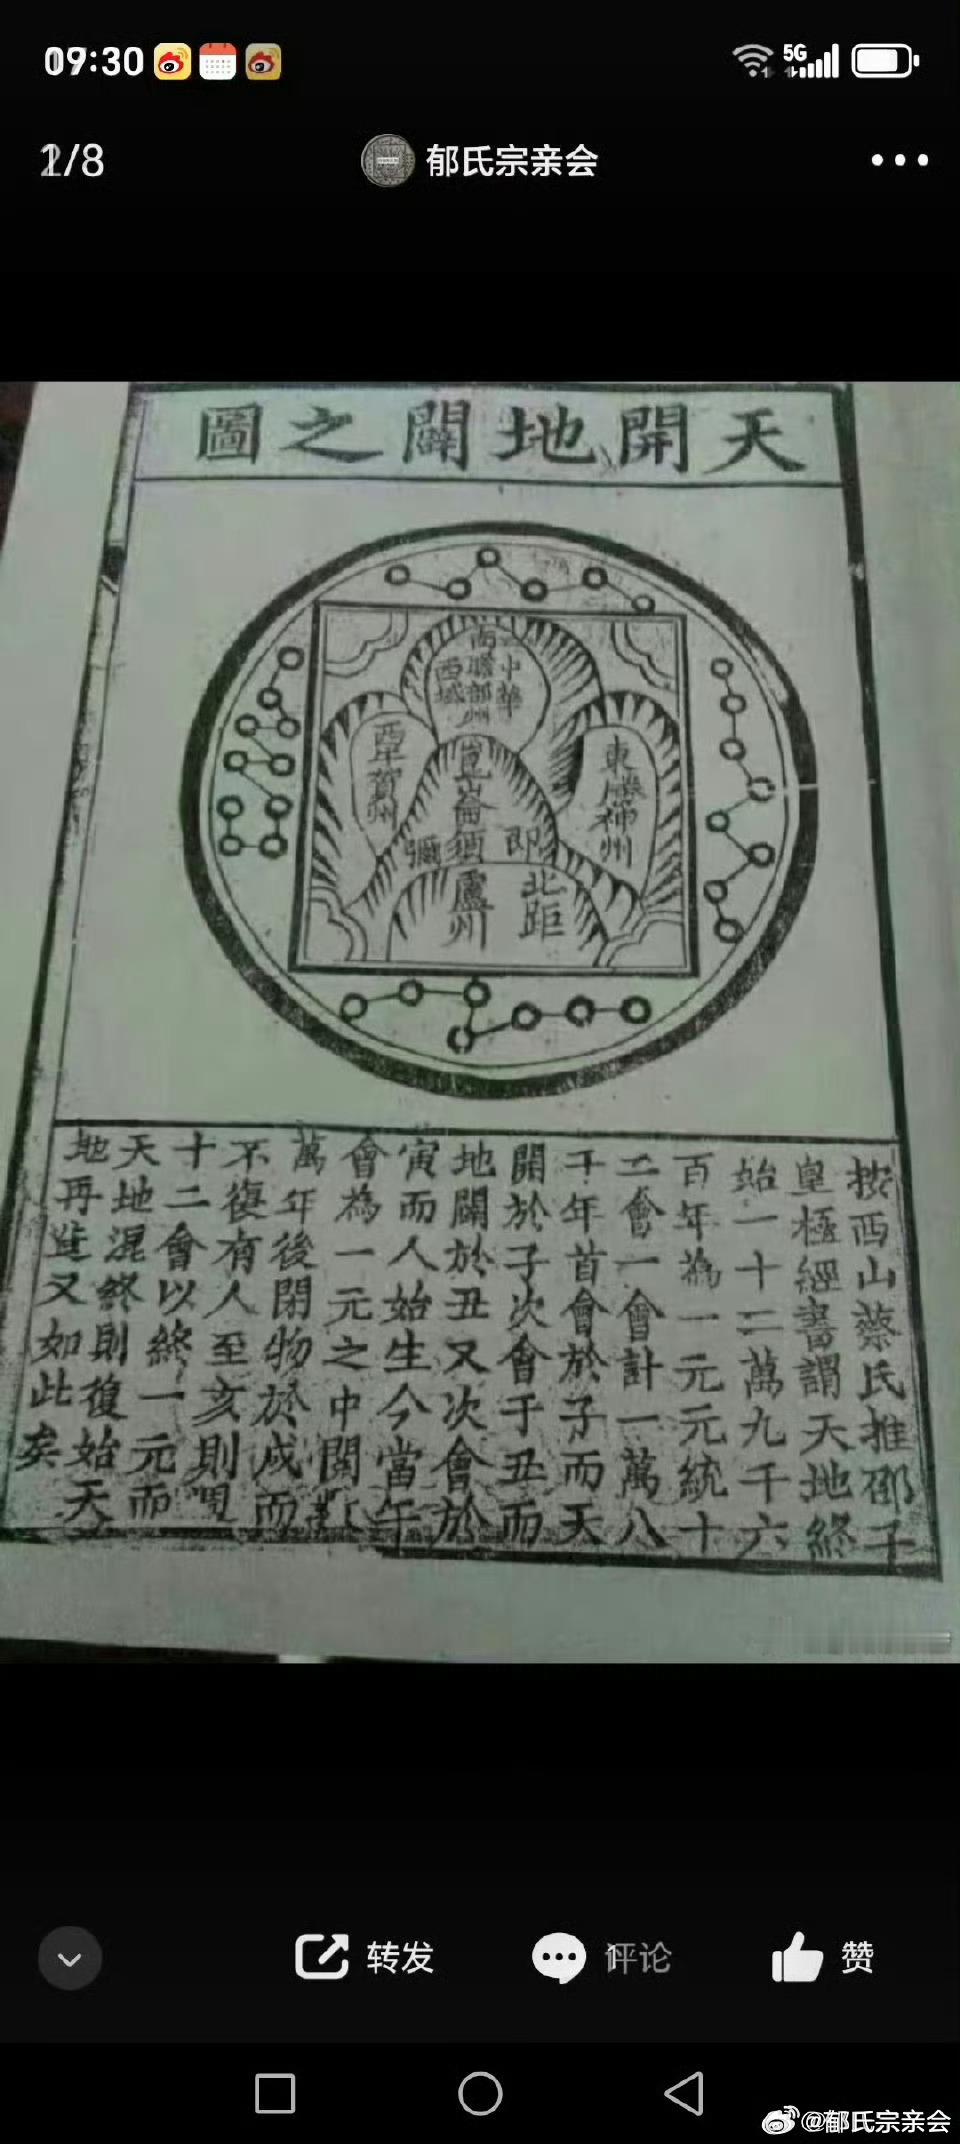 09:30
5G
1/8
郁氏宗亲会
天開地闢之圖
南贍部州
中華
西域
西牛賀州
東勝神州
崑崙
即須彌
北距
盧州
按西山蔡氏推邵子
皇極經書謂天地終
始一十二萬九千六
百年為一元元統十
二會一會計一萬八
千年首會於子而天
開於子次會于丑而
地闢於丑又次會於
寅而人始生今當午
會為一元之中閱
萬年後閉物於戍而
不復有人至亥則
十二會以終一元而
天地混終則復始天
地再造又如此矣
转发
评论
赞
@郁氏宗亲会